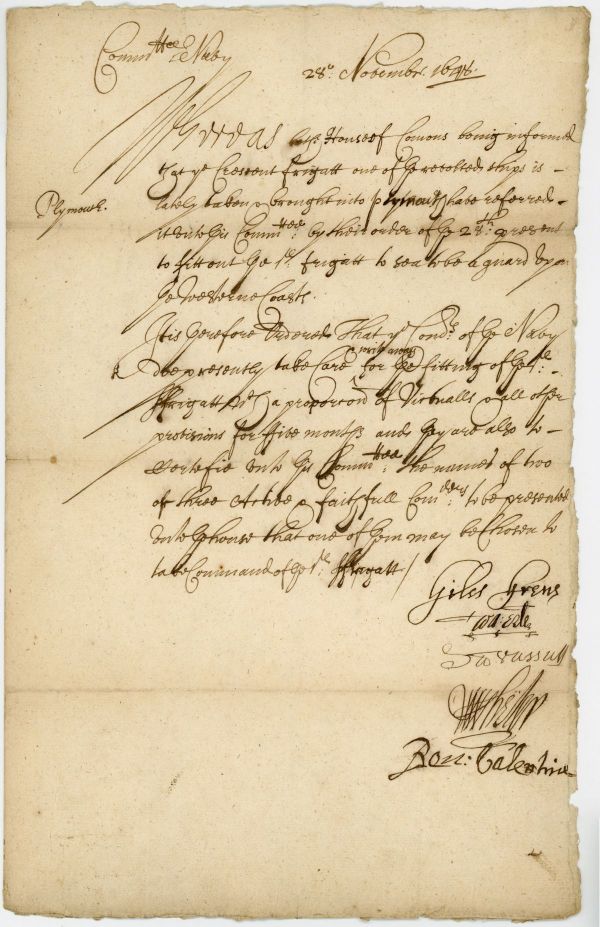 Committee Navy
28º November 1648.
Whereas the House of Comons being informed
that ye Crescent frigatt one of ye revolted ships is
Plymouth.
lately taken & brought into plymouth have referred
it unto this Committee by their order of ye 28th present
to fitt out the sd. frigatt to sea to be a guard upon
the Westerne Coasts.
It is therefore Ordered That ye Comrs. of the Navy
doe presently take care for the fitting of the sd.
ffrigatt wth a proporcon of Victualls & all other
provisions for ffive months and they are also to
Certefie unto this Committee the names of two
or three Active & faithfull Comders. to be presented
unto the house that one of them may be Chosen to
take Command of the sd. ffrigatt /
Giles Grene
Ben: Valentine